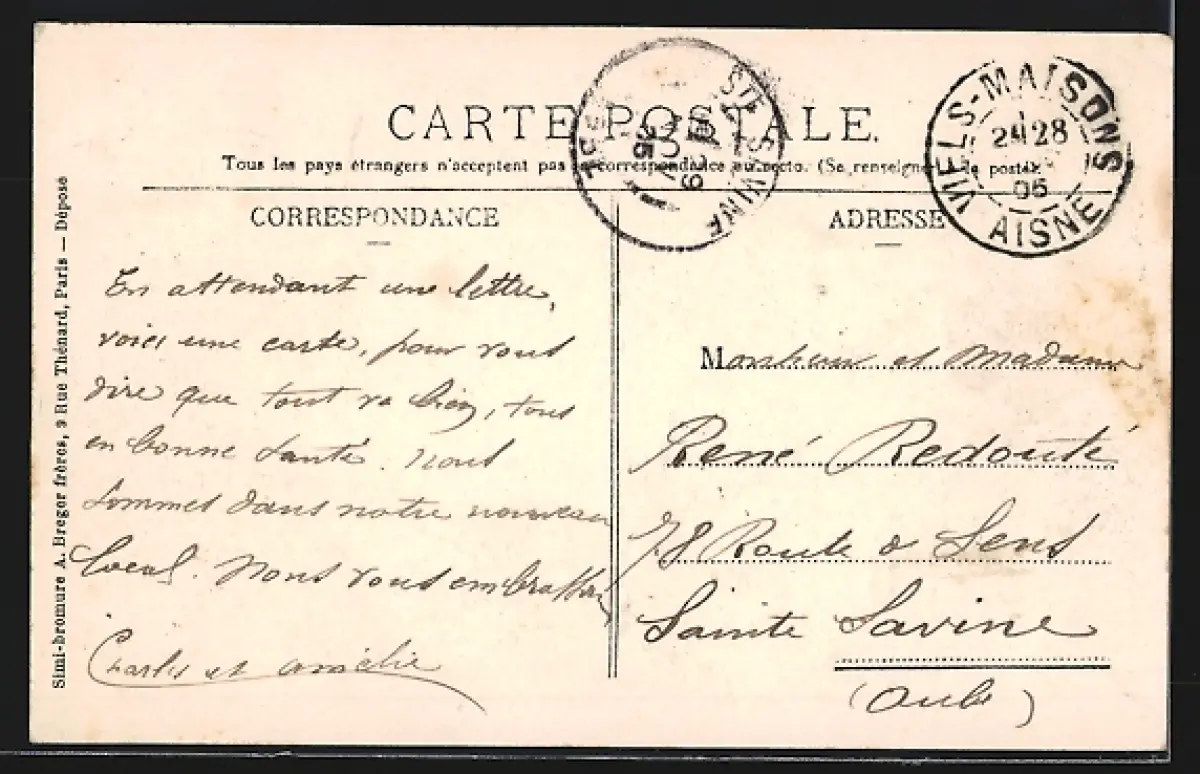 CARTE POSTALE.
Tous les pays étrangers n'acceptent pas la correspondance au recto. (Se renseigner à la poste)
CORRESPONDANCE
En attendant une lettre,
voici une carte, pour vous
dire que tout va bien, tous
en bonne santé. Nous
sommes dans notre nouveau
local. Nous vous embrassons
Charles et Amélie
ADRESSE
Monsieur et Madame
René Redouté
78 Route de Sens
Sainte Savine
(Aube)
VIELS-MAISONS
28
05
AISNE
STE SAVINE
05
Simi-bromure A. Breger frères, 9 Rue Thénard, Paris — Déposé